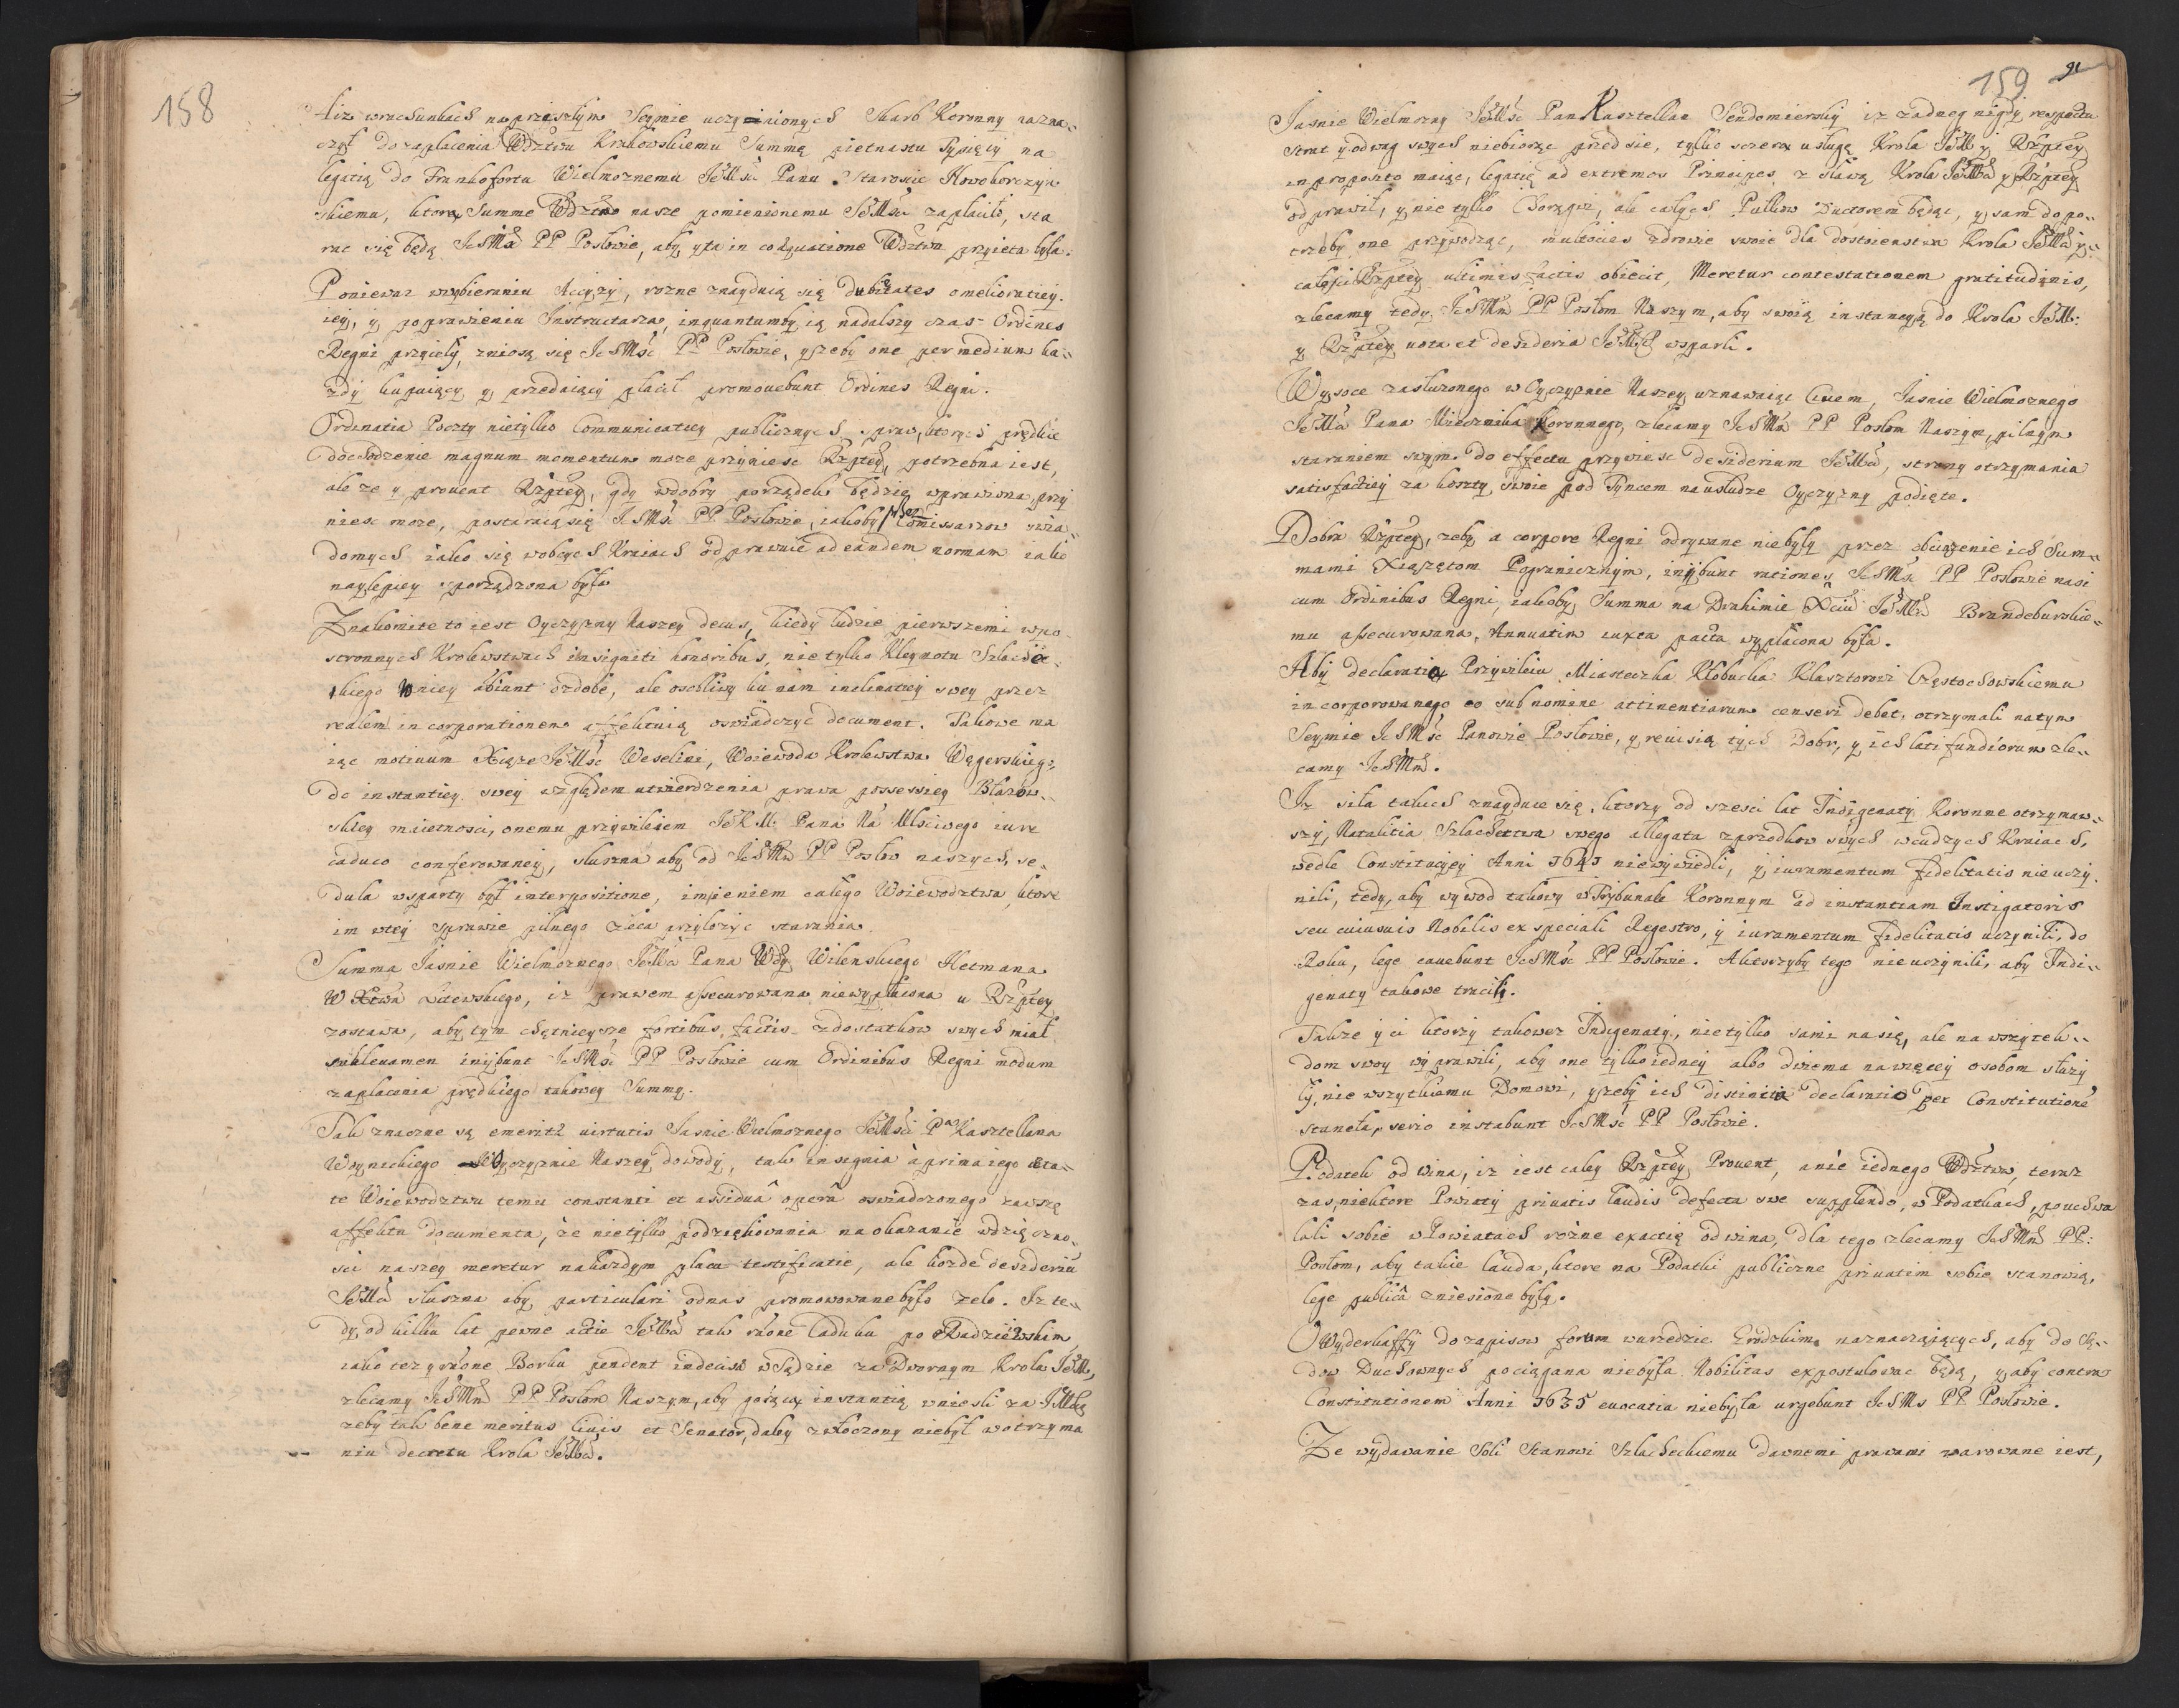 158
A iz wrachunkach naprzeszłym Seymie uczynionych Skarb Koronny nazna-
czył do zapłacenia Wdztwu Krakowskiemu Summę pietnastu Tysięcy na
legatią do Frankofortu Wielmoznemu JeMsci Panu Staroscie Nowokorczyn
skiemu, ktorą Summe Wdztwo nasze pomienionemu JeMsci zapłaciło, sta
rac się będą IchMść PP Posłowie, aby y ta in coæquatione Wdztwa przyieta była.
Poniewaz wwybieraniu Accyzy, rozne znayduią się dubietates o melioratiey
iey, y poprawieniu Instructarza, inquantumby ią nadalszy czas Ordines
Regni przyieły, zniosą się IchMść PP Posłowie, yzeby one per medium ka-
zdy kupuiący y przedaiący płacił promouebunt Ordines Regni.
Ordinatia Poczty nietylko Communicatiey publicznych spraw, ktorych prędkie
dochodzenie magnum momentum moze przyniesc Rzptey, potrzebna iest,
ale ze y prouent Rzptey, gdy wdobry porządek będzie wprawiona, przy
niesc moze, postaraią się IchMść PP Posłowie, iakoby Comissarzow swia
domych iako się wobcych Kraiach odprawuie ad eandem normam iako
naylepiey sporządzona była
Znakomite to iest Oyczyzny Naszey decus, kiedy ludzie pierwszemi wpo
stronnych Krolewstwach insigniti honoribus, nie tylko Kleynotu Szlache
ckiego wniey ambiunt ozdobe, ale osobliwy ku nam inclinatiey swey przez
realem incorporationem affektuią oswiadczyć document. Takowe ma
iąc motiuum Xiąze JeMść Weselini, Woiewoda Krolewstwa Węgerskiego
do instantiey swey względem utwierdzenia prawa possessiey Błazow-
skiey maietnosci, onemu przywileiem JeKM Pana Na Młsciwego iure
caduco conferowaney, słuszna aby od IchMw PP Posłow naszych, se-
dula wsparty był interpositione, imieniem całego Woiewodztwa, ktore
im wtey sprawie pilnego zleca przyłozyc starania.
Summa Jasnie Wielmoznego JeMści Pana Wdy Wilenskiego Hetmana
W Xtwa Litewskiego, iz prawem assecurowana niewypłacona u Rzptey
zostawa, aby tym chętnieysze fortibus factis zdostatkow swych miał
subleuamen iniibunt IchMść PP Posłowie cum Ordinibus Regni modum
zapłacenia prędkiego takowey Summy.
Tak znaczne są emeritæ uirtutis Jasnie Wielmoznego JeMsci Pa Kasztellana
Woynickiego w Oyczyznie Naszey dowody, tak insignia à prima iego æta-
te Woiewodztwu temu constanti et assiduâ operâ oswiadczonego zawsze
affektu documenta, ze nietylko podziękowania na okazanie wdzięczno-
sci naszey meretur nakazdym placu testificatie, ale kozde desideriū
JeMści słuszna aby particulari odnas promowowane było zelo. Iz te-
dy, od kilku lat pewne actie JeMści tak rłone Caduku po Radzieiowskim
iako tez y rłone Borku pendent indecisæ w Sądzie za Dwornym Krola JeM,
zlecamy IchMm PP Posłom Naszym, aby gorącą instantią wniesli za JeMscią
zeby tak bene meritus Ciuis et Senator, daley zwłoczony niebył wotrzyma
niu decretu Krola JeMści.
159 91
Jasnie Wielmozny JeMść Pan Kasztellan Sendomierskiy iz zadney nigdy respectu
strat y odwag swych niebiorąc przed sie, tylko sczerą usługę Krola JeM y Rzptey
in proposito maiąc, legatię ad extremos Principes z sławą Krola JeMści y Rzptey
odprawił, y nie tylko Chorągwi, ale całych Pułkow Ductorem będąc, y sam do po-
trzeby one przywodząc, multoties zdrowie swoie dla dostoienstwa Krola JeMści y
całosci Rzptey ultimis factis obiecit, Meretur contestationem gratitudinis,
zlecamy tedy IchMm PP Posłom Naszym, aby swoią instancyą do Krola JeM:
y Rzptey uota et desideria JeMści wsparli.
Wysoce zasłuzonego w Oyczyznie Naszey uznawaiąc Ciuem, Jasnie Wielmoznego
JeMści Pana Miecznika Koronnego, zlecamy IchMm PP Posłom Naszym, pilnym
staraniem swym do effectu przywiesc desiderium JeMści, strony otrzymania
satisfactiey za koszty swoie pod Tyncem nausłudze Oyczyzny podięte.
Dobra Rzptey, zeby a corpore Regni odrywane niebyły przez obciązenie ich Sum-
mami Xiązętom Pogranicznym, iniibunt rationes IchMść PP Posłowie nasi
cum Ordinibus Regni, iakoby Summa na Drahimie Xciu JeMści Brandeburskie-
mu assecurowana, Annuatim iuxta pacta wypłacona była.
Aby declaratią Przywileiu Miasteczka Kłobucka Klasztorowi Częstochowskiemu
incorporowanego eo sub nomine attinentiarum censeri debet, otrzymali natym
Seymie IchMść Panowie Posłowie, y reuisią tych Dobr, y ich latifundiorum zle-
camy IchMm.
Iz siła takich znayduie się, ktorzy od szesci lat Indigenaty Koronne otrzymaw-
szy, Natalitia Szlachectwa swego allegata z przodkow swych wcudzych Kraiach,
wedle Constitucyey Anni 1641 niewywiedli, y iuramentum fidelitatis nieuczy-
nili, tedy, aby wywod takowy w Trybunale Koronnym ad instantiam Instigatoris
seu cuiusuis Nobilis ex speciali Regestro, y iuramentum fidelitatis uczynili, do
Roku, lege cauebunt IchMść PP Posłowie. A ktorzyby tego nieuczynili, aby Indi-
genaty takowe tracili.
Takze y ci ktorzy takowez Indigenaty, nietylko sami nasię, ale na wszytek
dom swoy wyprawili, aby one tylko iedney albo dwiema nawięcey osobom słuzy
ły, nie wszytkiemu Domowi, yzeby ich distincta declaratio per Constitutionē
staneła, serio instabunt IchMść PP Posłowie.
Podatek od wina, iz iest całey Rzptey Prouent, a nie iednego Wdztwa, teraz
zas, niektore Powiaty priuatis laudis defecta swe supplendo, w Podatkach, pouchwa
lali sobie w Powiatach rozne exactie od wina, dla tego zlecamy IchMm PP:
Posłom, aby takie lauda, ktore na Podatki publiczne priuatim sobie stanowią,
lege publicâ zniesione były.
O Wyderkaffy do zapisow forum wurzedzie Grodzkim naznaczaiących, aby do Są-
dow Duchownych pociągana niebyła Nobilitas expostulowac będą, y aby contra
Constitutionem Anni 1635 euocatia niebyła urgebunt IchMs PP Posłowie.
Ze wydawanie Soli Stanowi Szlacheckiemu dawnemi prawami warowane iest,